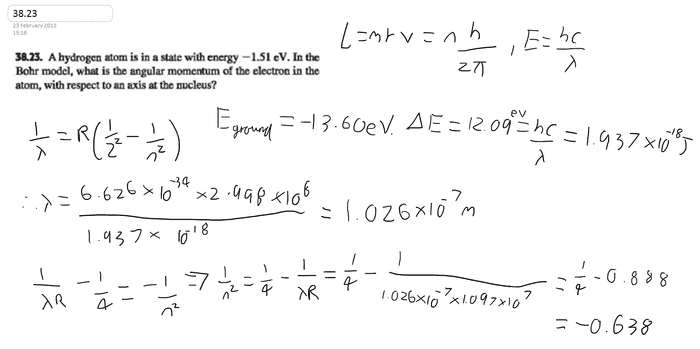 38.23
23 February 2013
15:16
38.23. A hydrogen atom is in a state with energy −1.51 eV. In the
Bohr model, what is the angular momentum of the electron in the
atom, with respect to an axis at the nucleus?
L = mrv = n h/2π , E = hc/λ
1/λ = R(1/2² − 1/n²)
E ground = −13.60eV. ΔE = 12.09 eV = hc/λ = 1.937 × 10⁻¹⁸ J
∴ λ = 6.626 × 10⁻³⁴ × 2.998 × 10⁸ / 1.937 × 10⁻¹⁸ = 1.026 × 10⁻⁷ m
1/λR − 1/4 = −1/n² ⇒ 1/n² = 1/4 − 1/λR = 1/4 − 1/1.026×10⁻⁷×1.097×10⁷ = 1/4 − 0.888
= −0.638